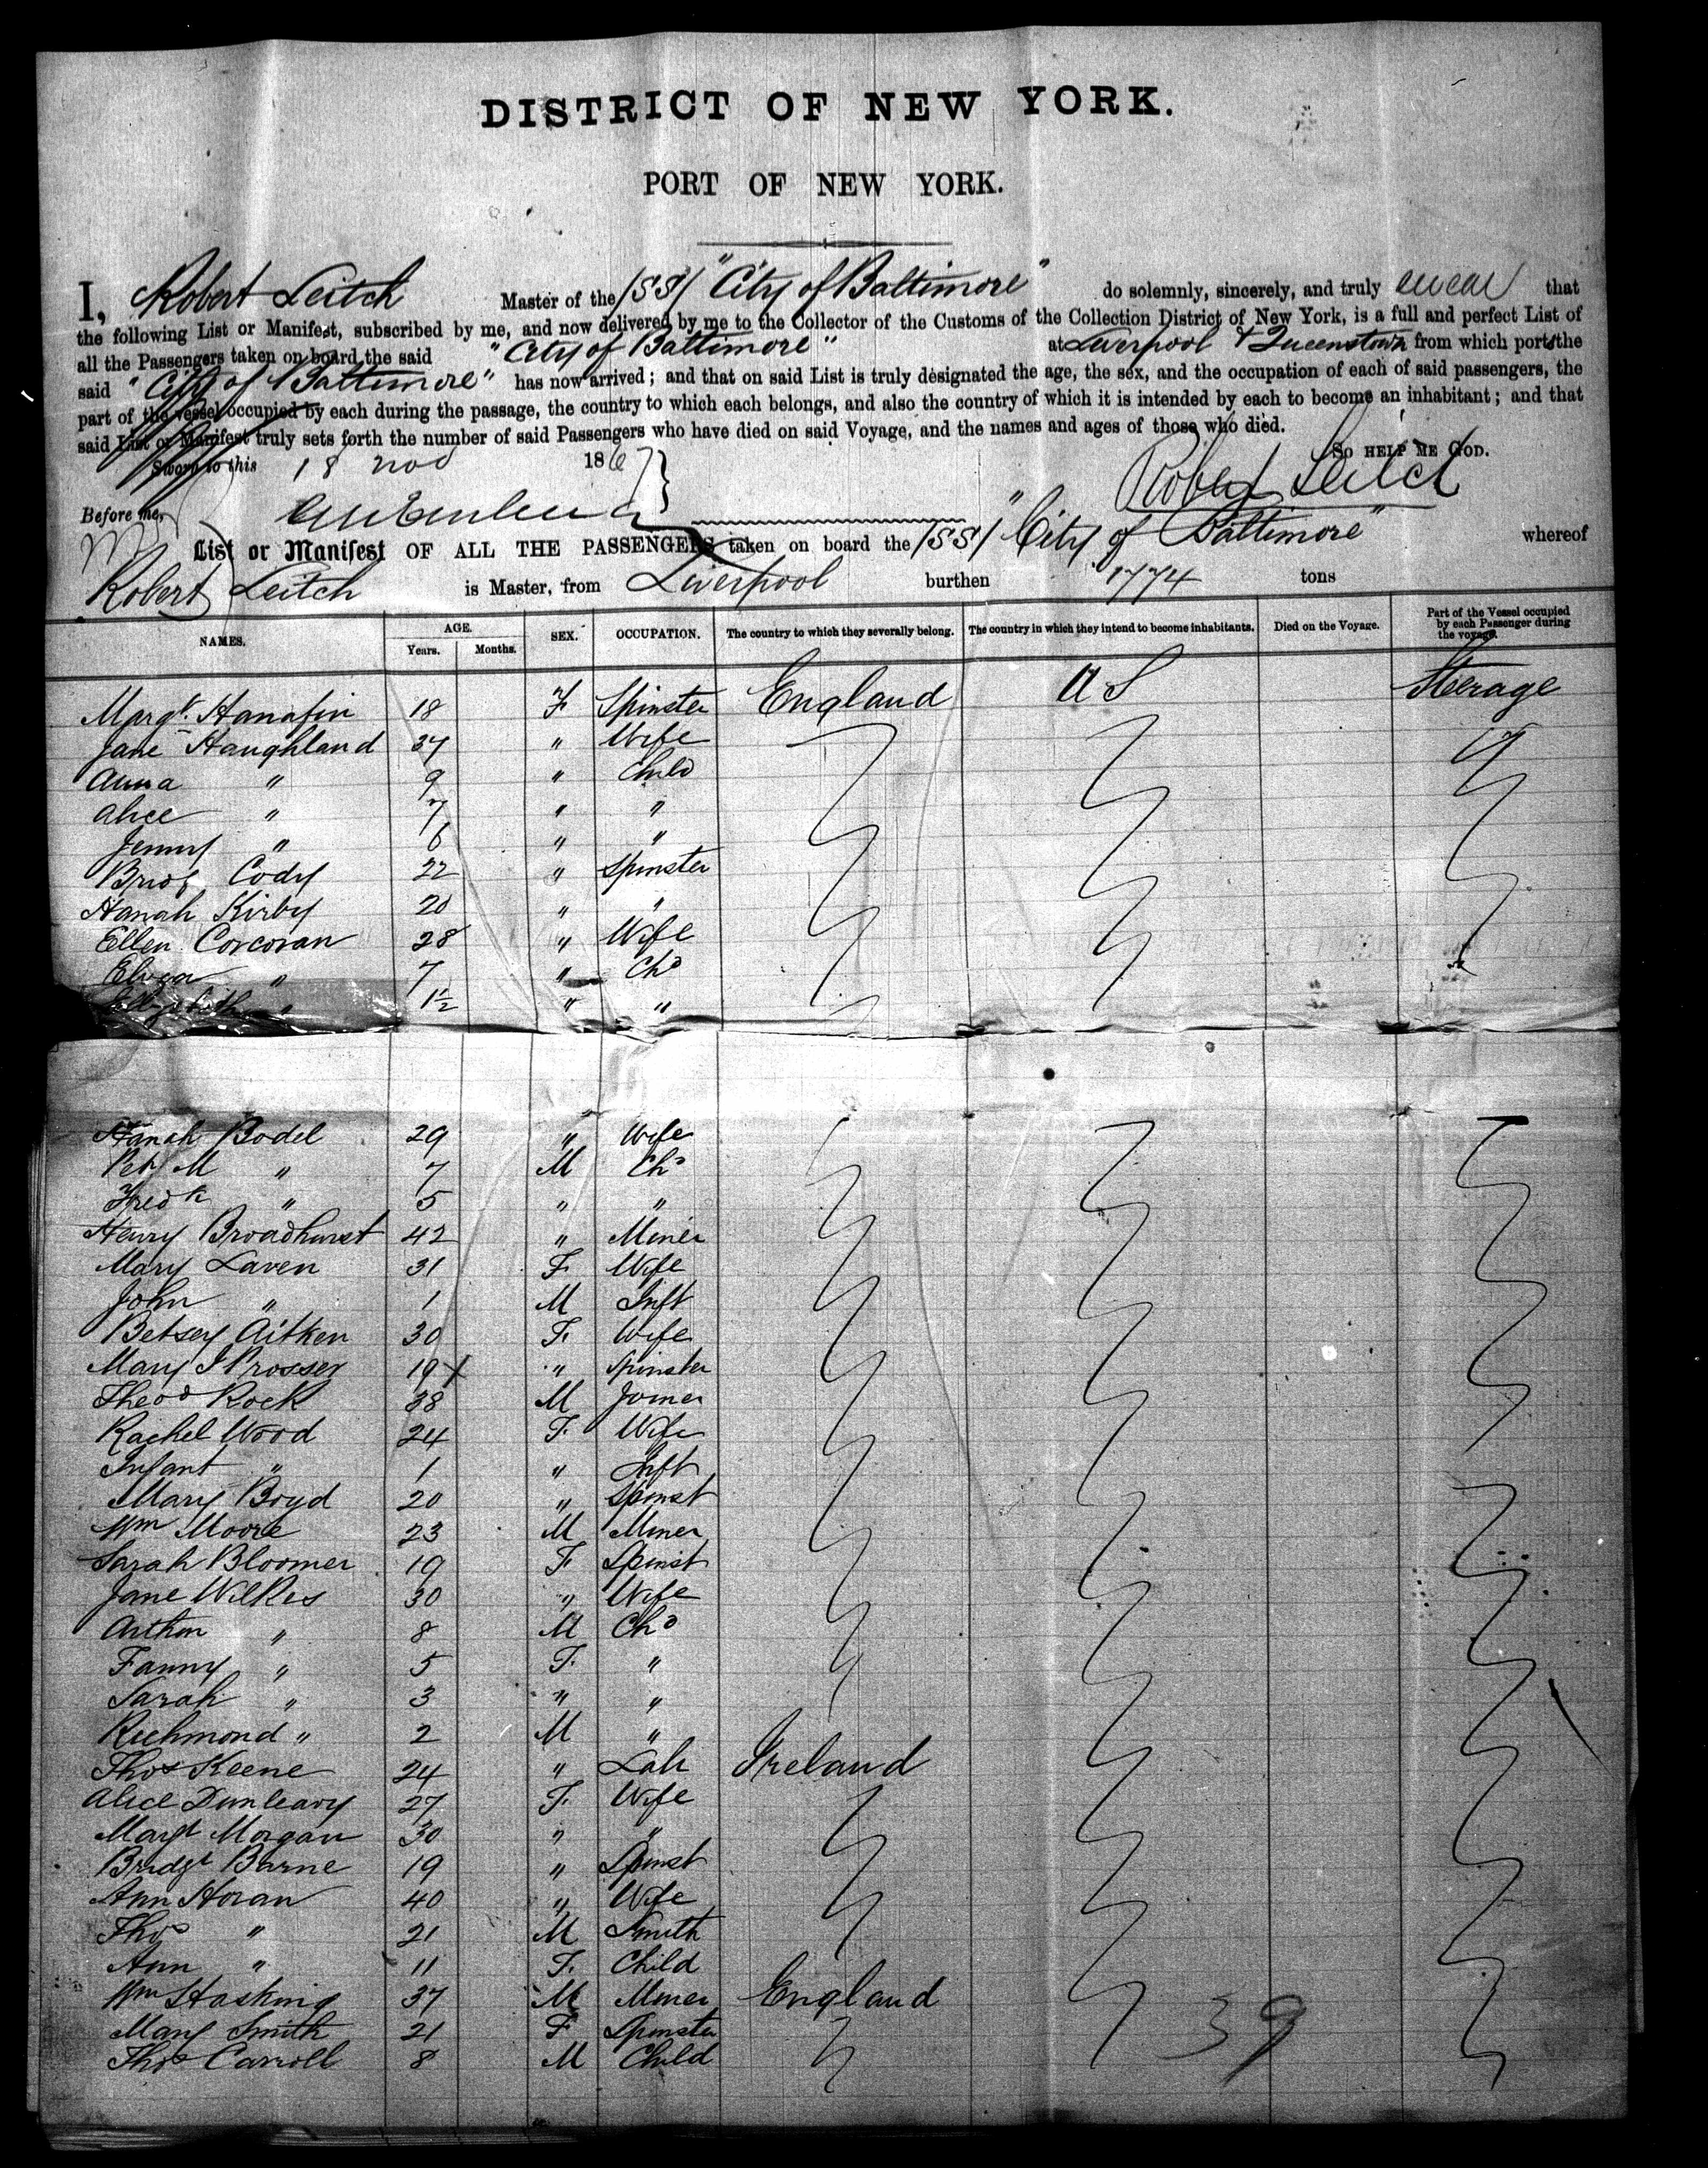 DISTRICT OF NEW YORK.
PORT OF NEW YORK.
I, Robert Leitch Master of the /SS/ "City of Baltimore" do solemnly, sincerely, and truly swear that
the following List or Manifest, subscribed by me, and now delivered by me to the Collector of the Customs of the Collection District of New York, is a full and perfect List of
all the Passengers taken on board the said "City of Baltimore" at Liverpool & Queenstown from which ports the
said "City of Baltimore" has now arrived; and that on said List is truly designated the age, the sex, and the occupation of each of said passengers, the
part of the vessel occupied by each during the passage, the country to which each belongs, and also the country of which it is intended by each to become an inhabitant; and that
said List or Manifest truly sets forth the number of said Passengers who have died on said Voyage, and the names and ages of those who died.
Sworn to this 18 Nov 1867 So HELP ME GOD.
Before me, Robert Leitch
List or Manifest OF ALL THE PASSENGERS taken on board the /SS/ "City of Baltimore" whereof
Robert Leitch is Master, from Liverpool burthen 1774 tons
NAMES. AGE. Years. Months. SEX. OCCUPATION. The country to which they severally belong. The country in which they intend to become inhabitants. Died on the Voyage. Part of the Vessel occupied by each Passenger during the voyage.
Margt. Hanafin 18 F Spinster England U S Steerage
Jane Haughland 37 " Wife
Anna " 9 " Child
Alice " 7 " "
Jenny " 6 " "
Bridt Cody 22 " Spinster
Hanah Kirby 20 " "
Ellen Corcoran 28 " Wife
Eliza " 7 " Chd
" 1½ " "
Hanah Bodel 29 " Wife
Petr M " 7 M Chd
Fredk " 5 " "
Henry Broadhurst 42 " Miner
Mary Laven 31 F Wife
John " 1 M Inft
Betsey Aitken 30 F. Wife
Mary J Prosser 19 x " Spinster
Theod Rock 38 M Joiner
Rachel Wood 24 F. Wife
Infant " 1 " Inft
Mary Boyd 20 " Spinst
Wm Moore 23 M Miner
Sarah Bloomer 19 F Spinst
Jane Wilkes 30 " Wife
Arthur " 8 M Chd
Fanny " 5 F. "
Sarah " 3 " "
Richmond " 2 M "
Thos Keene 24 " Lab Ireland
Alice Dunleavy 27 F. Wife
Margt Morgan 30 " "
Bridgt Barne 19 " Spinst
Ann Horan 40 " Wife
Thos " 21 M Smith
Ann " 11 F. Child
Wm Hosking 37 M Miner England
Mary Smith 21 F Spinster
Thos Carroll 8 M Child
39